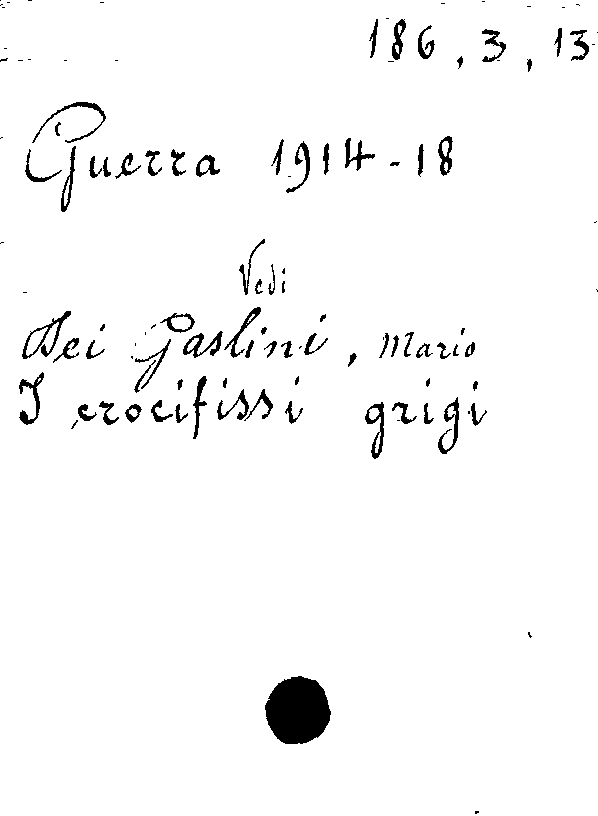 186, 3, 13
Guerra 1914-18
Vedi
Dei Gaslini, Mario
I crocifissi grigi